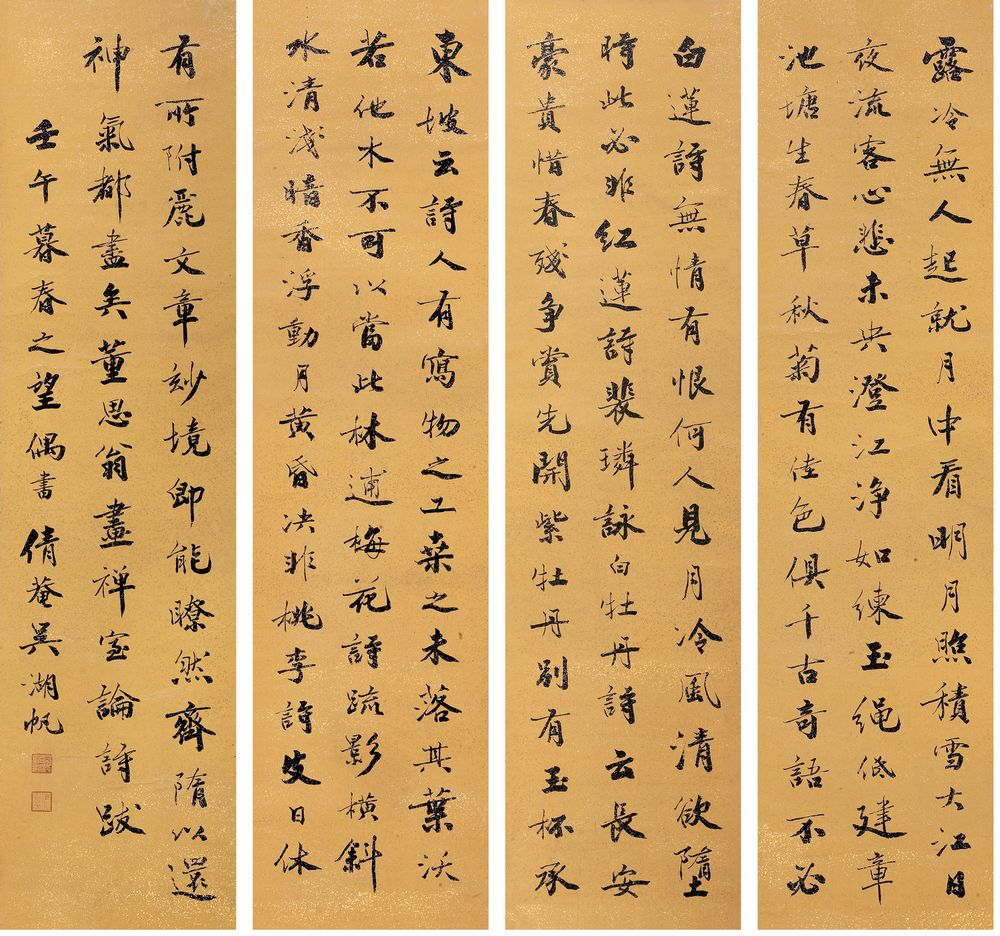 東坡云詩人有寫物之工桑之未落其葉沃
若他木不可以當此林逋梅花詩疏影橫斜
水清淺暗香浮動月黄昏决非桃李詩皮日休
白蓮詩無情有恨何人見月冷風清欲墮
時此必非紅蓮詩裴璘詠白牡丹詩云長安
豪貴惜春殘争賞先開紫牡丹別有玉杯承
露冷無人起就月中看明月照積雪大江日
夜流客心悲未央澄江浄如練玉繩低建章
池塘生春草秋菊有佳色俱千古奇語不必
有所附麗文章妙境即能瞭然齊隋以還
神氣都盡矣董思翁畫禪室論詩跋
壬午暮春之望偶書倩菴吳湖帆